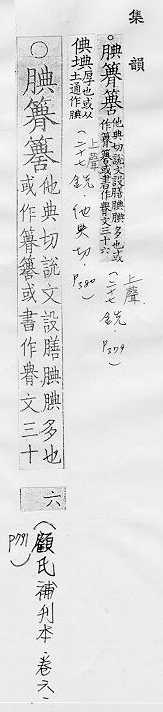 集韻
○腆𥴫𥵪他典切說文設膳腆腆多也或
作𥴫𥵪或書作䐌文三十六
上聲
(二十七銑·
P379
㥏㙉厚也或从
土通作腆
上聲
(二十七銑·他典切·)
P380
○腆
他典切說文設膳腆腆多也
或作
或書作
文三十
六
(顧氏補刊本·卷六·
P791)